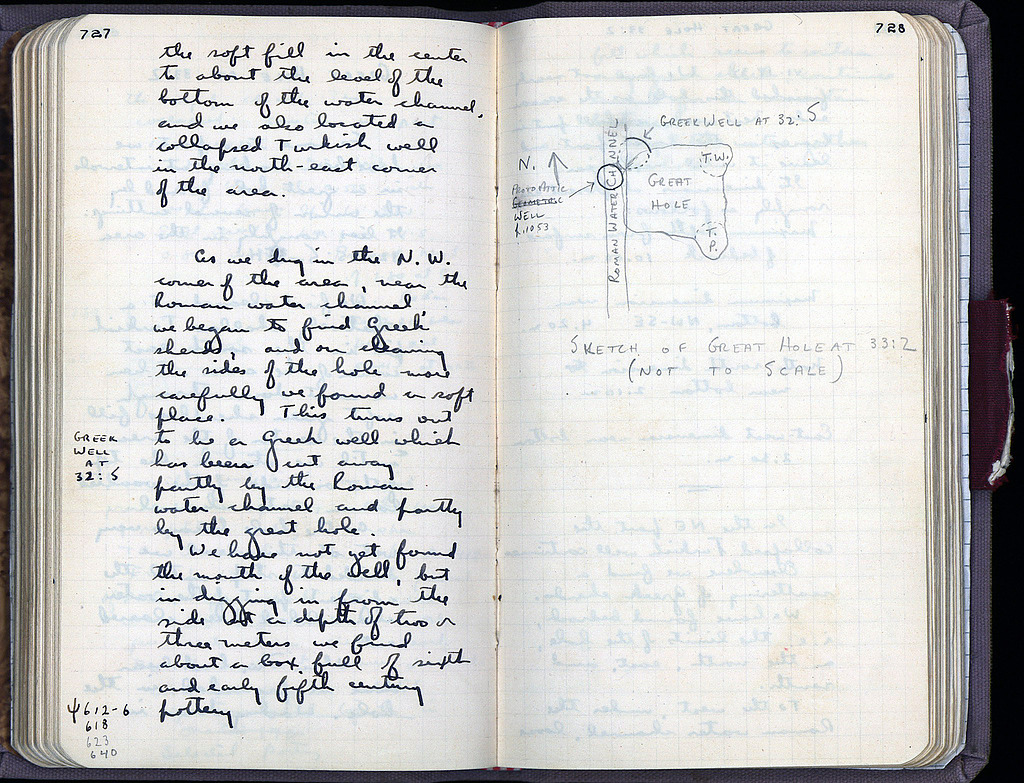 727
the soft fill in the center
to about the level of the
bottom of the water channel,
and we also located a
collapsed Turkish well
in the north-east corner
of the area.
As we dug in the N. W.
corner of the area, near the
Roman water channel,
we began to find Greek
sherds, and on cleaning
the sides of the hole more
carefully we found a soft
place. This turns out
GREEK WELL AT 32:5
to be a Greek well which
has been cut away
partly by the Roman
water channel and partly
by the great hole.
We have not yet found
the mouth of the well, but
in digging in from the
side at a depth of two or
three meters we found
about a box full of sixth
and early fifth century
pottery
Ψ612-6
618
623
640
728
GREEK WELL AT 32:5
N.
ROMAN WATER CHANNEL
T.W.
GREAT
HOLE
T.
P.
PROTOATTIC
GEOMETRIC
WELL
p.1053
SKETCH OF GREAT HOLE AT 33:2
(NOT TO SCALE)